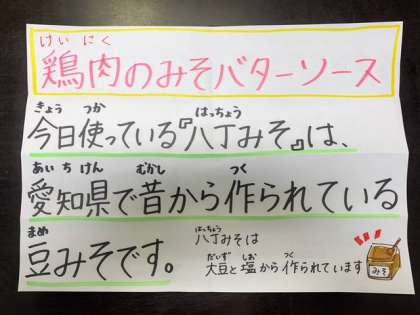 けいにく
鶏肉のみそバターソース
きょう つか はっちょう
今日使っている『八丁みそ』は、
あいちけん むかし つく
愛知県で昔から作られている
まめ
豆みそです。
はっちょう
八丁みそは
だいず しお つく
大豆と塩から作られています
みそ